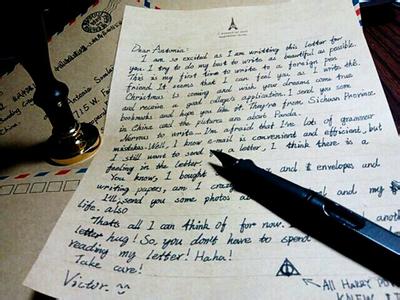 Dear Antonia:
I am so excited as I am writing this letter for
you. I try to do my best to write as beautiful as possible.
This is my first time to write to a foreign pen
friend. It seems that I can feel you as I write the.
Christmas is coming and wish your dreams come true
and receive a good college's application. I send you some
bookmarks and hope you like it. They're from Sichuan Province
in China and the pictures are about Panda.
Nervous to write. I'm afraid that I've lots of grammar
mistakes. Well, I know e-mail is convenient and efficient, but
I still want to send a letter, I think there is a
feeling in the letter.
You know, I bought and envelopes and
writing papers, am I crazy and my
I'll send you some photos
life. also
That's all I can think of for now. I another
letter hug! So, you don't have to spend
reading my letter! Haha!
Take care!
Victor.
ALL HARRY
KNEW
Antonio
715 W.